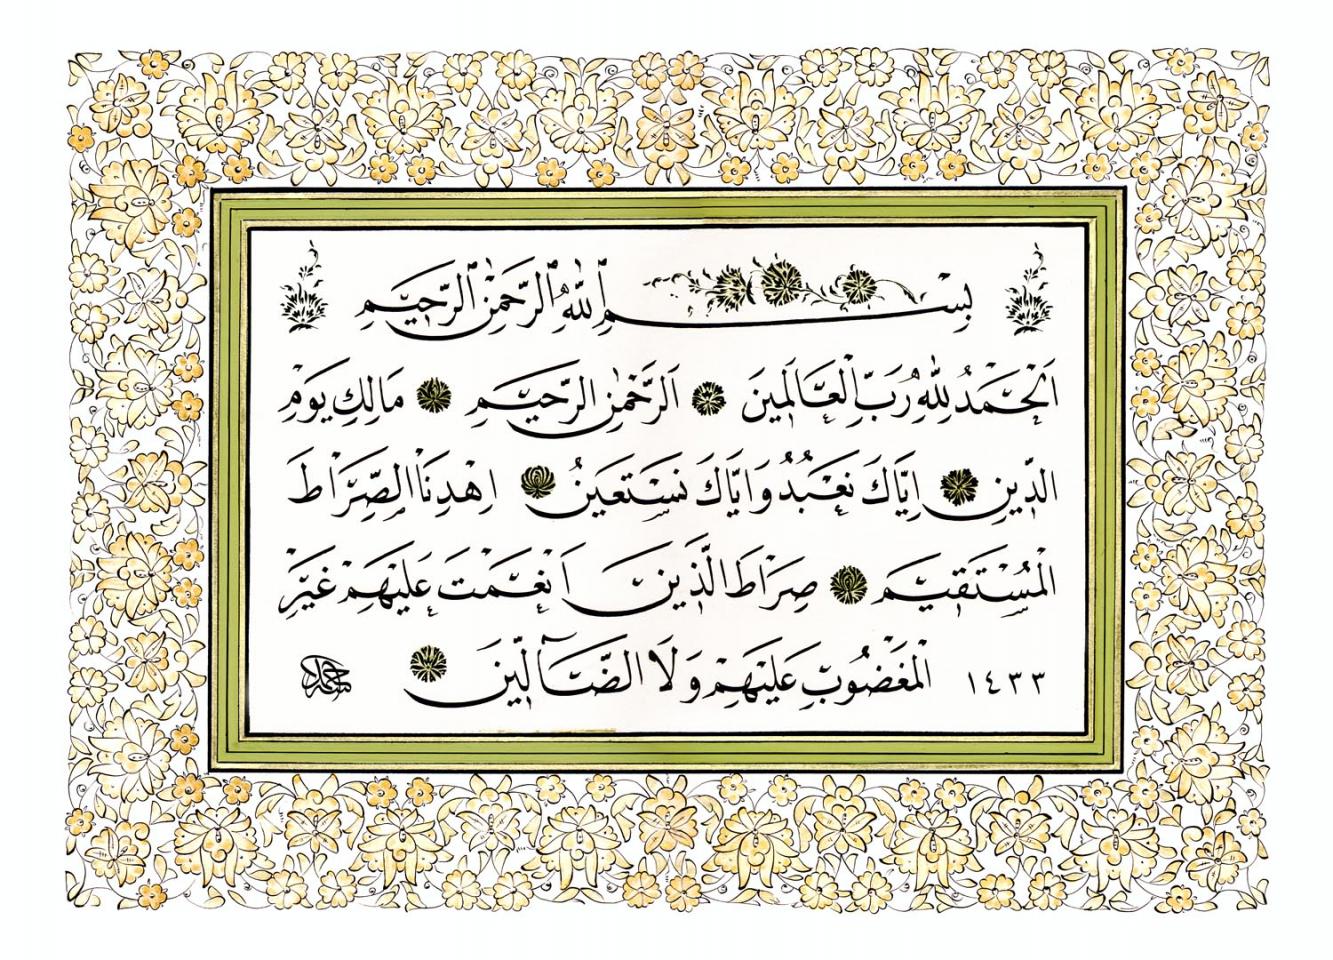 بِسْمِ اللهِ الرَّحْمٰنِ الرَّحِيمِ
اَلْحَمْدُ لِلّٰهِ رَبِّ الْعَالَمِينَ اَلرَّحْمٰنِ الرَّحِيمِ مَالِكِ يَوْمِ
الدِّينِ اِيَّاكَ نَعْبُدُ وَاِيَّاكَ نَسْتَعِينُ اِهْدِنَا الصِّرَاطَ
الْمُسْتَقِيمَ صِرَاطَ الَّذِينَ اَنْعَمْتَ عَلَيْهِمْ غَيْرِ
الْمَغْضُوبِ عَلَيْهِمْ وَلَا الضَّآلِّينَ
١٤٣٣